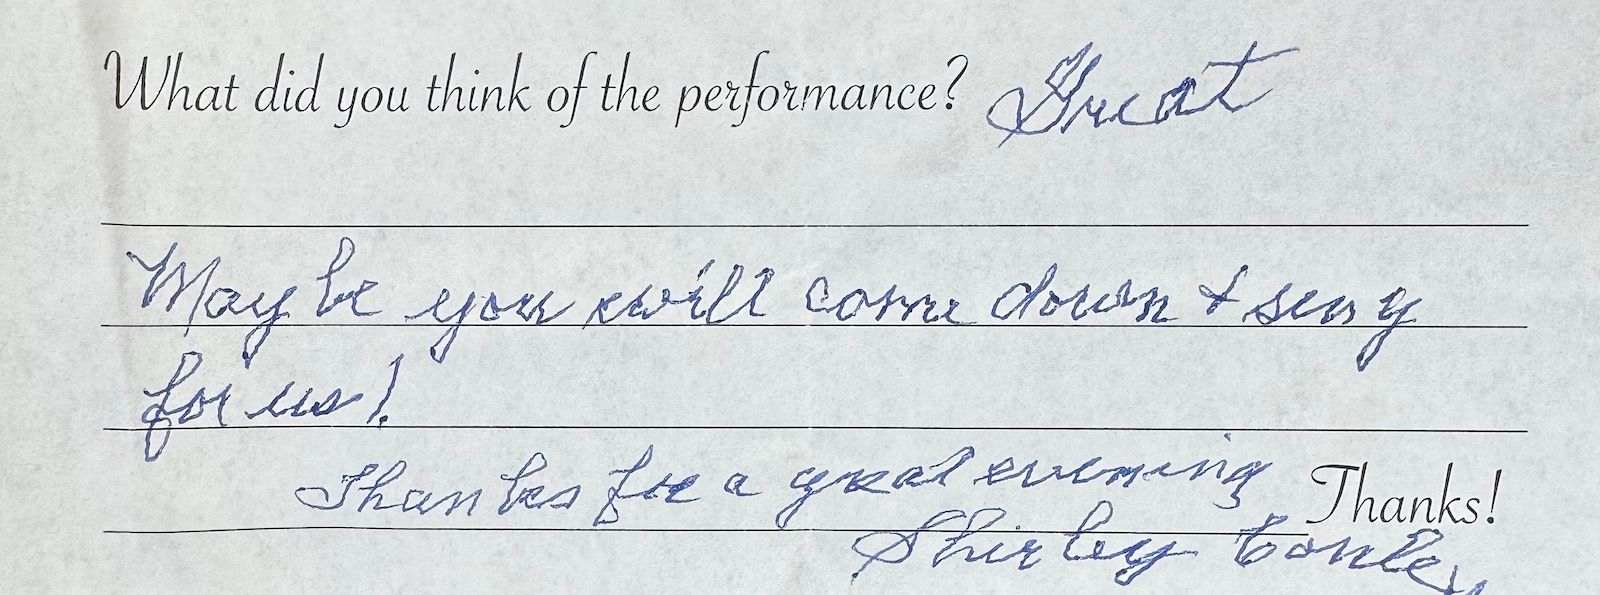 What did you think of the performance? Great
Maybe you will come down & sing
for us!
Thanks for a great evening Thanks!
Shirley Conley